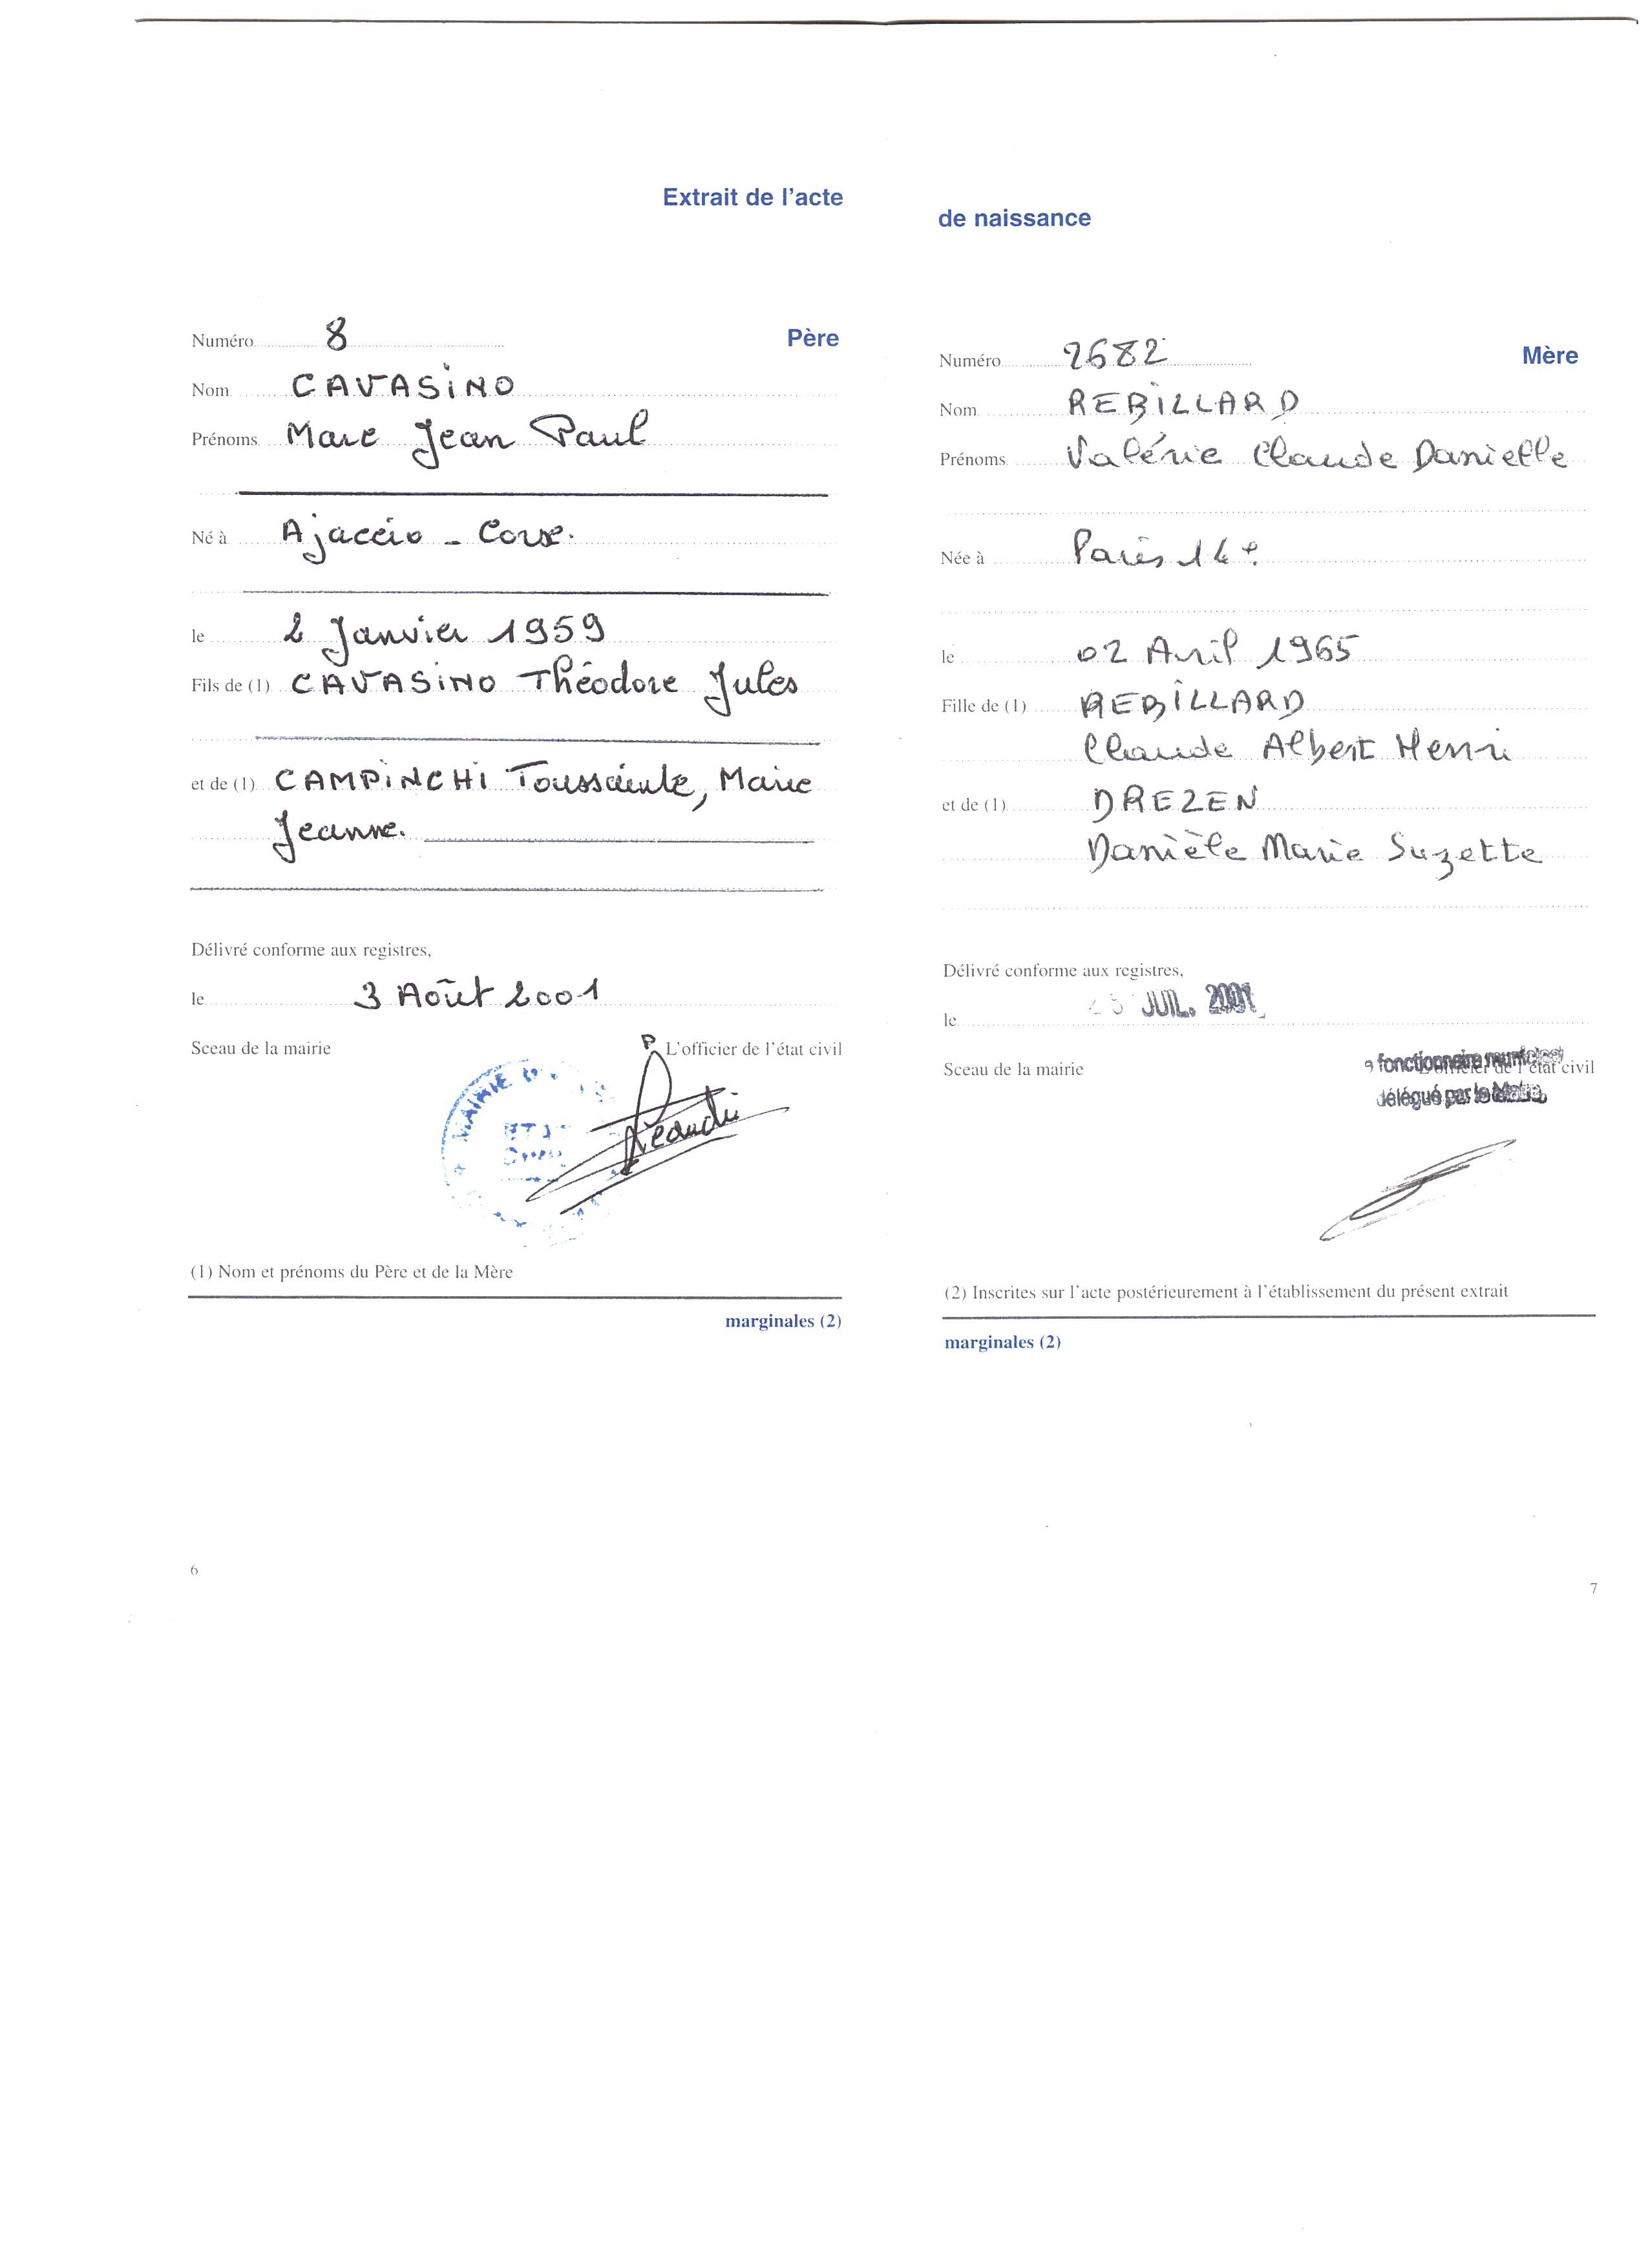 Extrait de l'acte
de naissance
Numéro 8 Père
Nom CAVASiNO
Prénoms Marc Jean Paul
Né à Ajaccio - Corse.
le 2 Janvier 1959
Fils de (1) CAVASiNO Théodore Jules
et de (1) CAMPiNCHi Toussainte, Marie
Jeanne.
Délivré conforme aux registres,
le 3 Août 2001
Sceau de la mairie P L'officier de l'état civil
MAIRIE
(1) Nom et prénoms du Père et de la Mère
marginales (2)
6
Numéro 2682 Mère
Nom REBiLLARD
Prénoms Valérie Claude Danielle
Née à Paris 14e.
le 02 Avril 1965
Fille de (1) REBiLLARD
Claude Albert Henri
et de (1) DREZEN
Danièle Marie Suzette
Délivré conforme aux registres,
le JUIL. 2001
Sceau de la mairie L'officier de l'état civil
fonctionnaire municipal
délégué par le Maire
(2) Inscrites sur l'acte postérieurement à l'établissement du présent extrait
marginales (2)
7